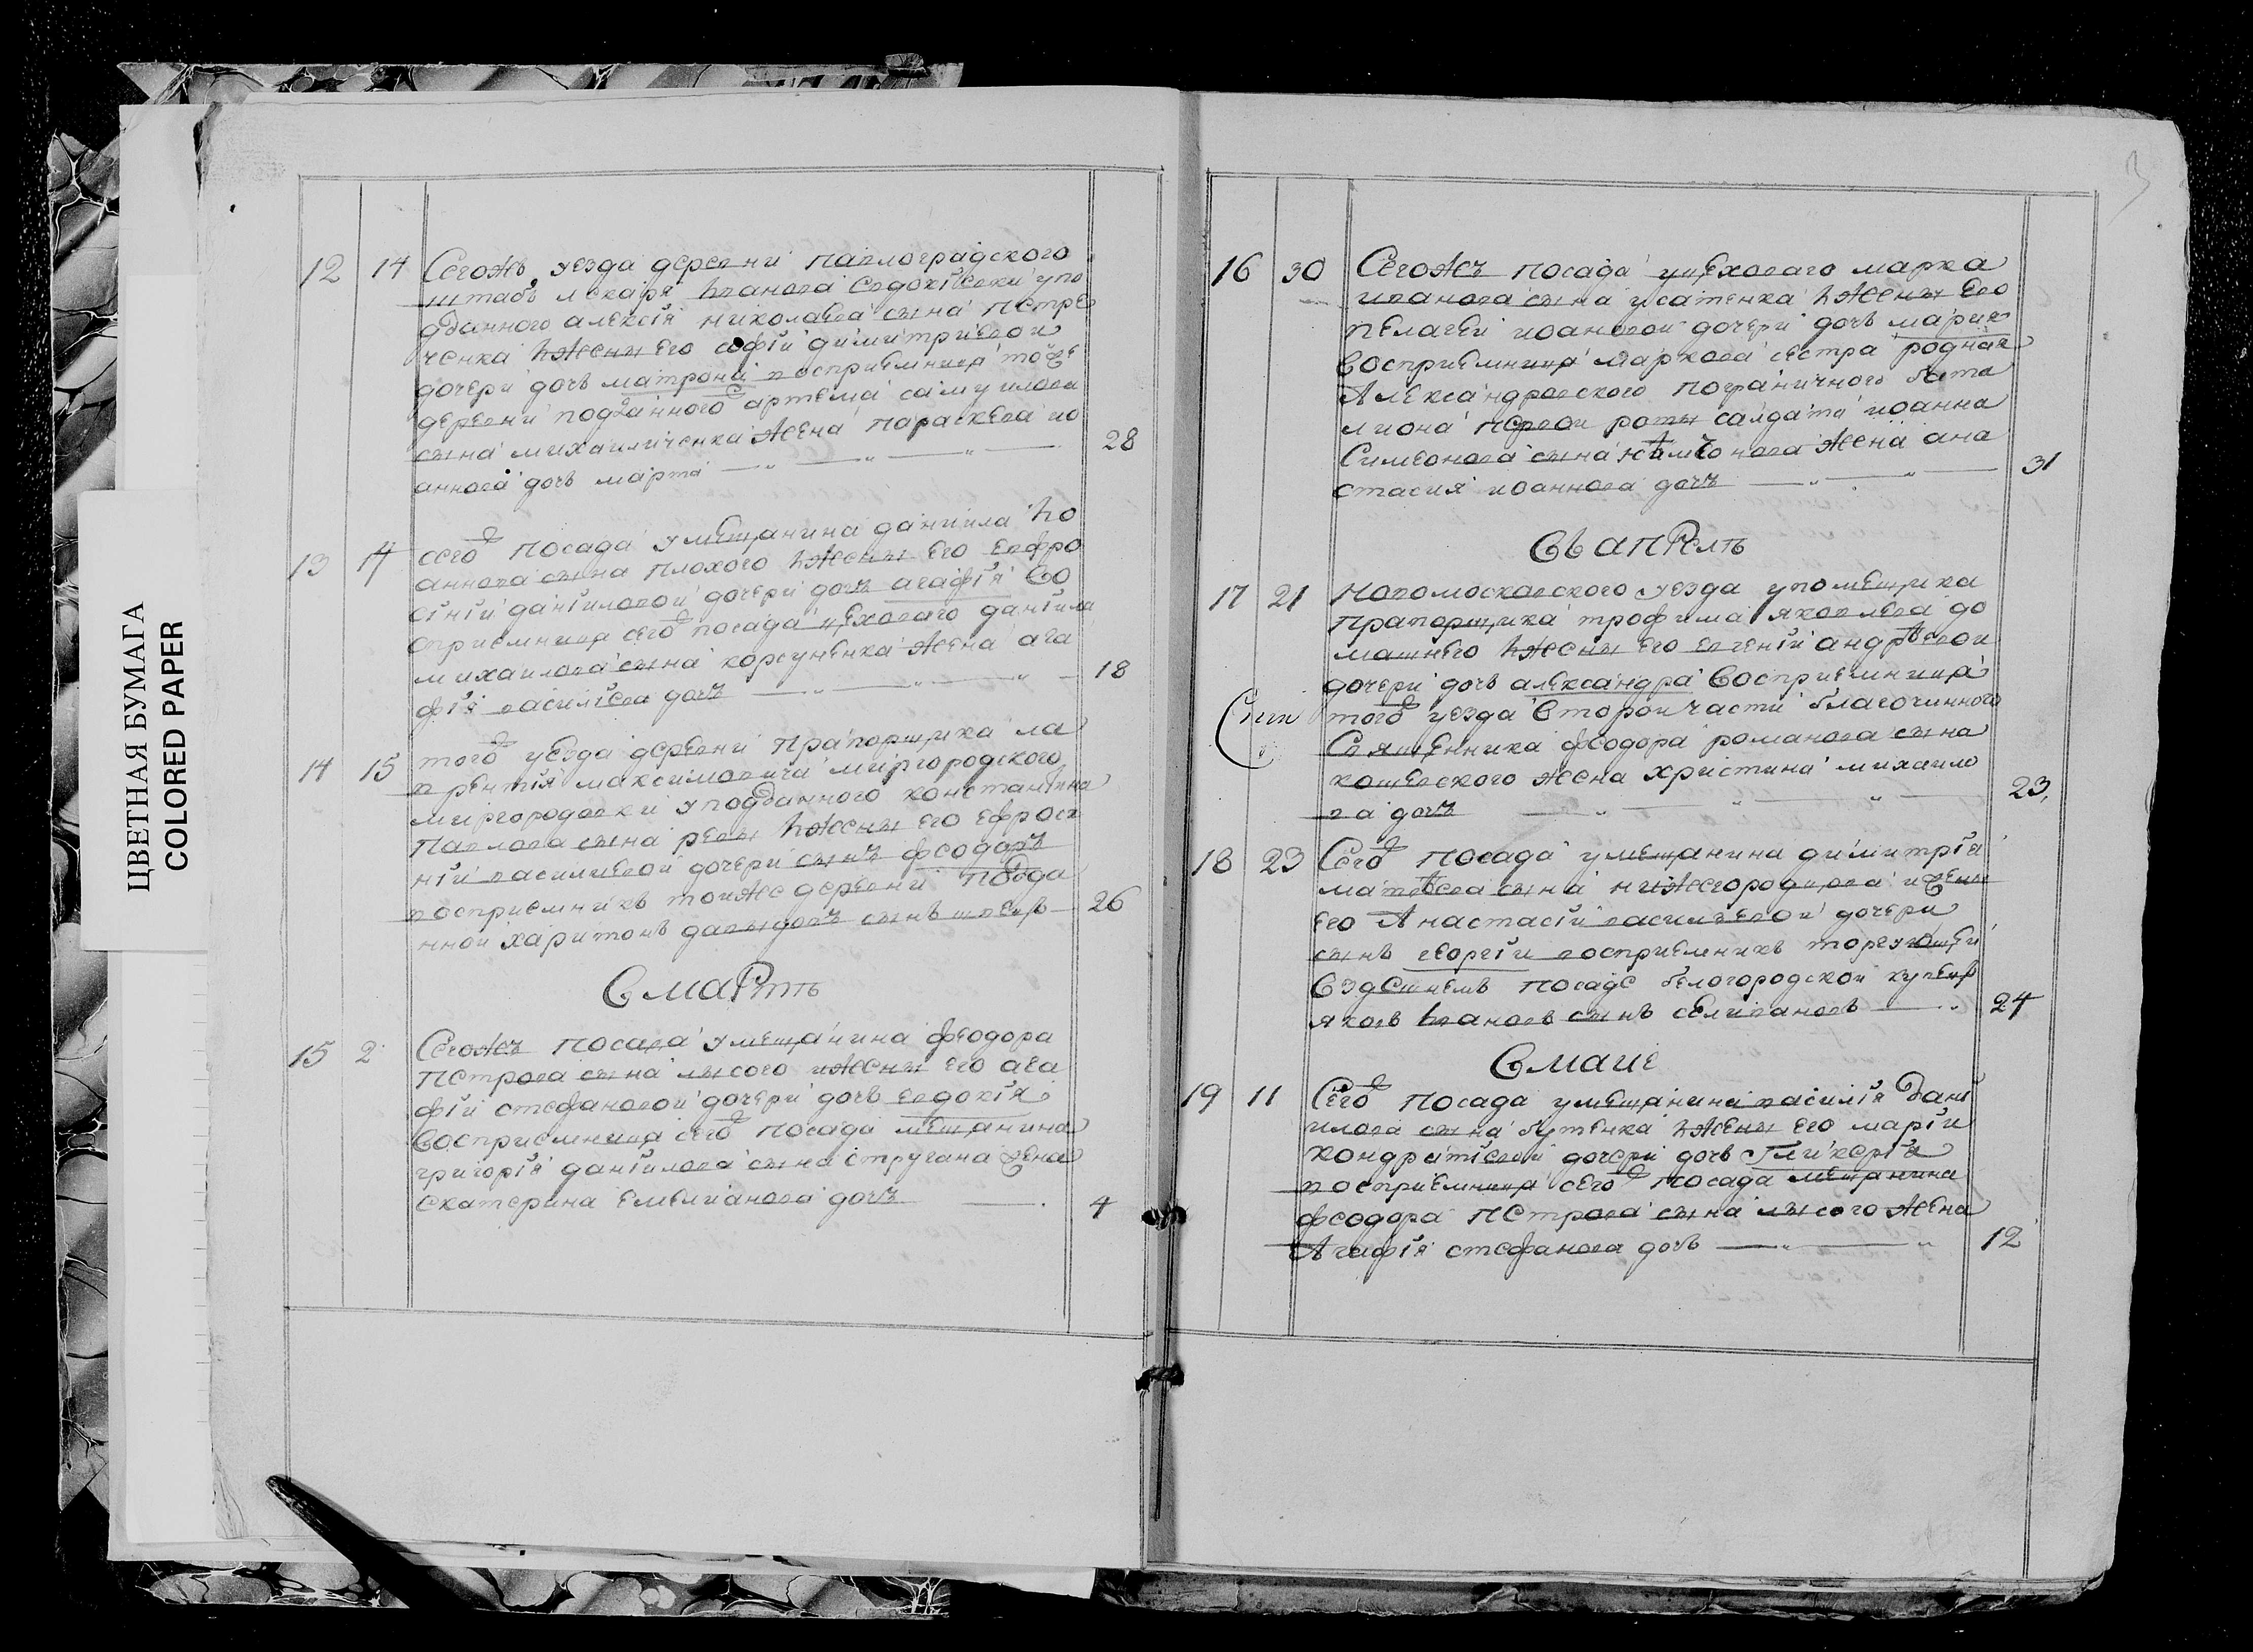 ЦВЕТНАЯ БУМАГА
COLORED PAPER
12 14 Сегожъ уезда деревни павлоградского
штабъ лекаря Иванова Евдокіевки упо
дданного алексія николаева сына петре
ченка ижены его софіи димитриевои
дочери дочь матрона восприемница тойже
деревни подданного артема самуилова
сына михаиличенка жена параскева ио
аннова дочь марта 28
13 14 сего посада умещанина даниила Ио
аннова сына плохого ижены его евфро
сініи даніиловои дочери дочъ агафія Во
сприемница сего посада цеховаго даніила
михаилова сына корсуненка жена ага
фія василіева дочъ 18
14 15 того уезда деревни прапорщика ла
врентія максимовича миргородского
миргородовки уподданного константина
павлова сына ревы ижены его ефроси
ніи василиевой дочери сынъ феодоръ
восприемникъ тоижедеревни подда
нной харитонъ давыдовъ сынъ швецъ 26
В мартъ
15 2 Сегожъ посада умещанина феодора
петрова сына лысого ижены его ага
фіи стефановой дочери дочь евдокія
Восприемница сего посада мещанина
григорія даніилова сына стругана жена
екатерина емелианова дочъ 4
3
16 30 Сегожъ посада уцеховаго марка
иванова сына усатенка ижены его
пелагеи иоановой дочери дочь мария
Восприемница маркова сестра родная
Александровского пограничного бата
лиона первои роты салдата иоанна
Симеонова сына жена ана
стасия иоаннова дочъ 31
Въ апрелъ
17 21 Новомосковского уезда упомещика
прапорщика трофима яковлева до
машнего ижены его евгеніи андреевои
дочери дочь александра Восприемница
того уезда Второй части благочинного
Священника феодора романова сына
кошевского жена христина михаило
ва дочъ 23
18 23 Сего посада умещанина димитрія
матвеева сына нижегородцова ижены
его Анастасіи василъевой дочери
сынъ георгіи восприемникъ торгующей
Вздешнемъ посаде белогородской купецъ
яковъ Ивановъ сынъ селивановъ 24
В маие
19 11 Сего посада умещанина василія дані
илова сына бутенка ижены его маріи
кондратіевой дочери дочь Гликерія
восприемница сего посада мещанина
феодора петрова сына лысого жена
Агафія стефанова дочь 12